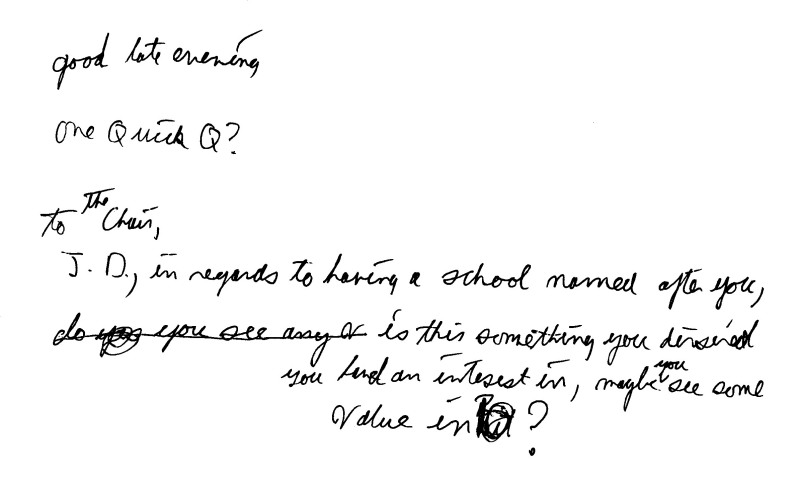 good late evening
One Quick Q?
to the Chair,
J. D., in regards to having a school named after you,
do you see any is this something you
you had an interest in, maybe you see some
value in ?